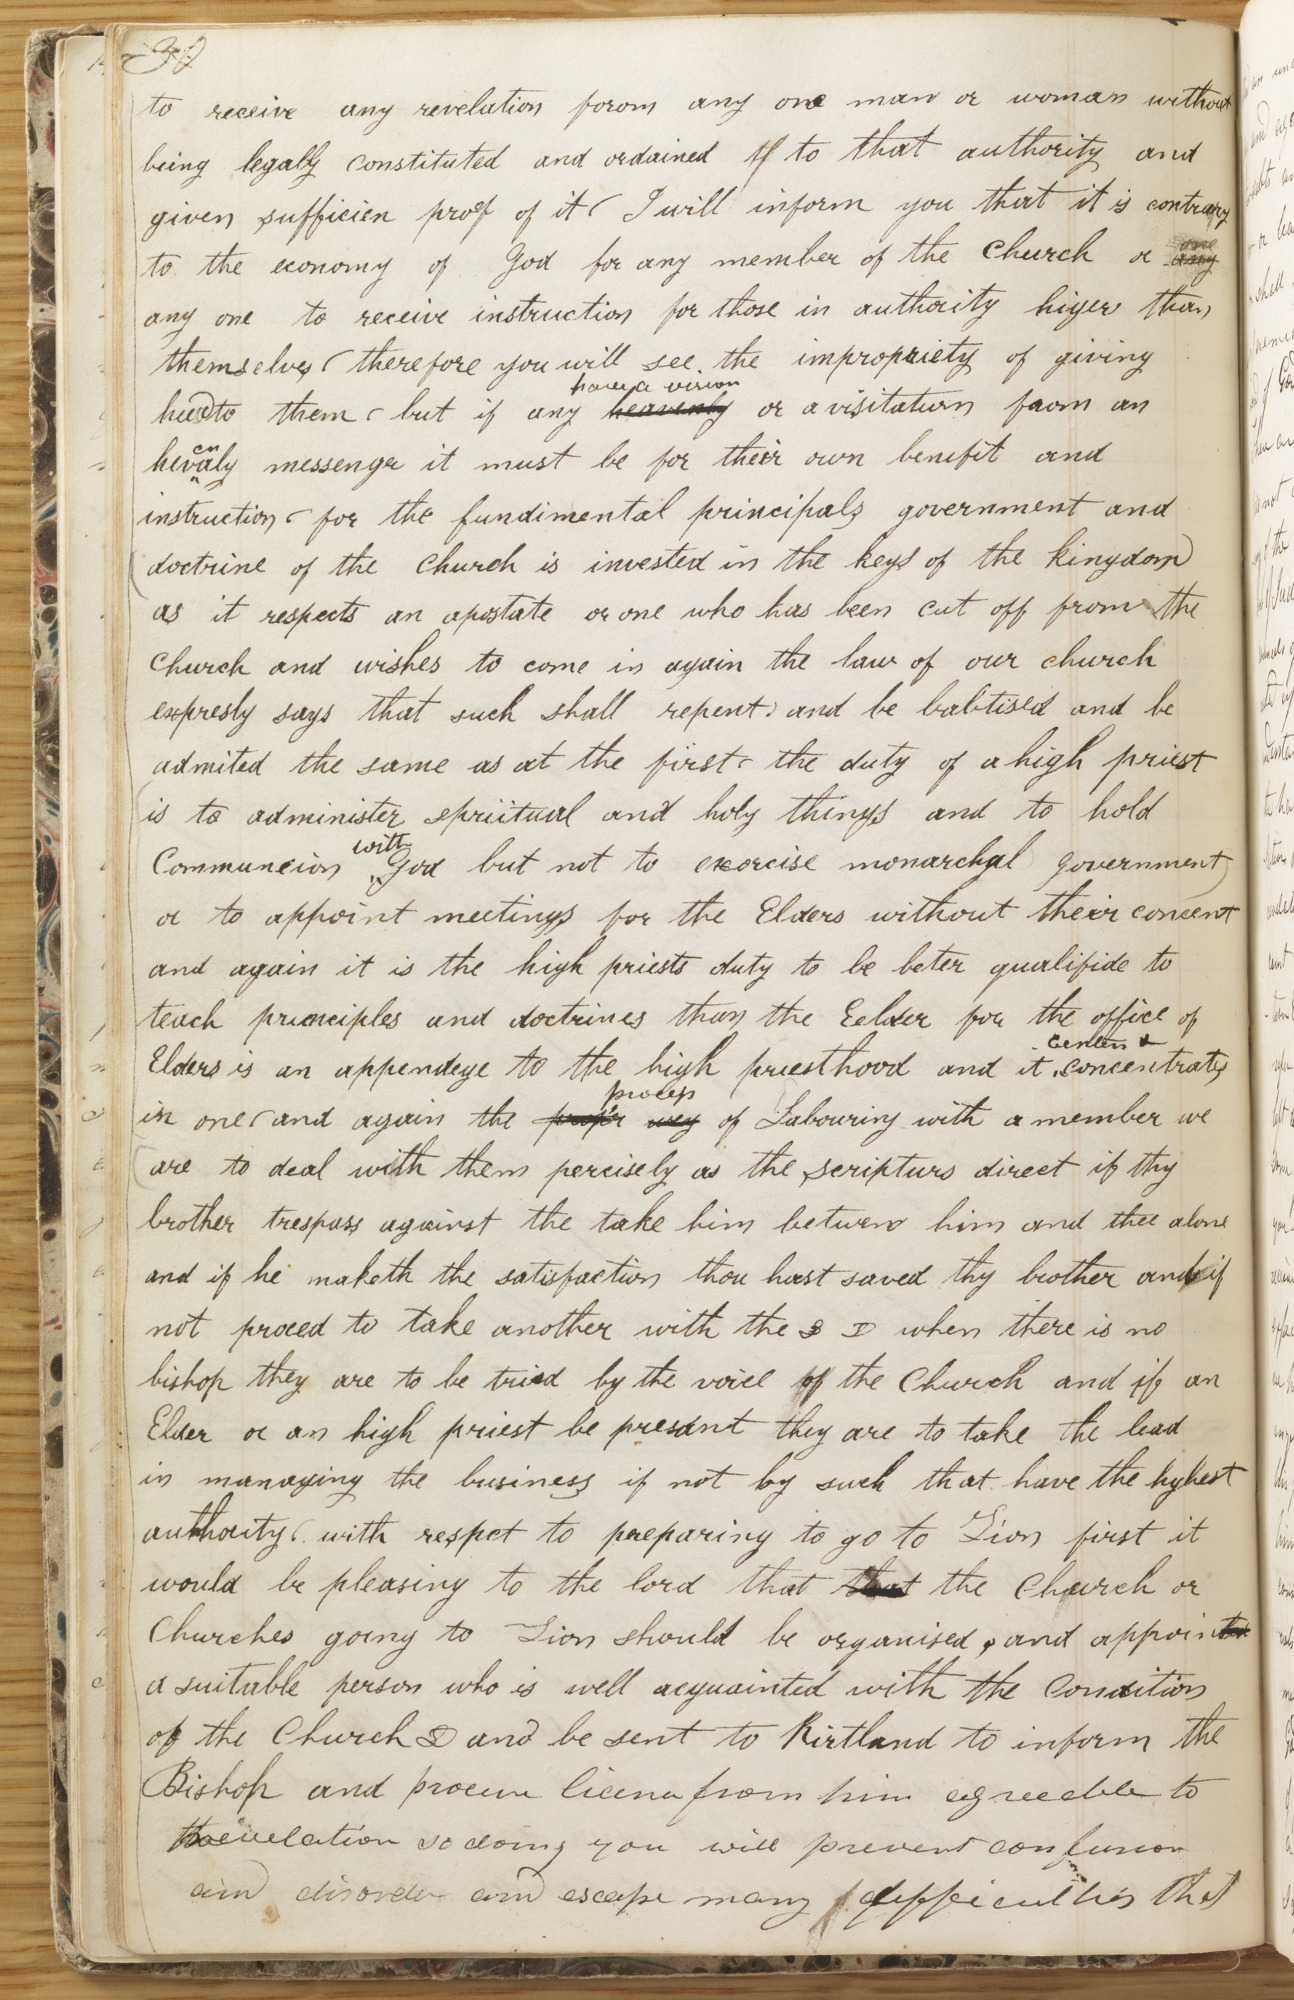 30
to receive any revelation forom any one man or woman without
being legaly constituted and ordained to that authority and
given sufficien proof of it I will inform you that it is contrary
to the economy of God for any member of the Church or
any one to receive instruction for those in authority higer than
themselves therefore you will see the impropriety of giving
heed to them but if any have a vision heavenly or a visitation from an
hevenly messenger it must be for their own benifit and
instruction for the fundimental principals government and
doctrine of the Church is invested in the keys of the kingdom
as it respects an apostate or one who has been cut off from the
Church and wishes to come in again the law of our church
expresly says that such shall repent and be babtised and be
admited the same as at the first the duty of a high priest
is to administer spriitual and holy things and to hold
Communcion with God but not to exorcise monarchal government
or to appoint meetings for the Elders without their concent
and again it is the high priests duty to be beter qualifide to
teach principles and doctrines than the Eelder for the office of
Elders is an appendege to the high priesthood and it centers & concentrates
in one and again the proper way process of Labouring with a member we
are to deal with them percisely as the scripturs direct if thy
brother trespass against the take him between him and thee alone
and if he maketh the satisfaction thou hast saved thy brother and if
not proceed to take another with the when there is no
bishop they are to be tried by the voice of the Church and if an
Elder or an high priest be presant they are to take the lead
in managing the business if not by such that have the hyhest
authority with respct to preparing to go to Zion first it
would be pleasing to the lord that that the Church or
Churches going to Zion should be organised and appoint
a suitable person who is well acquainted with the Condition
of the Church and be sent to Kirtland to inform the
Bishop and procure licence from him agreeable to
revelation so doing you will prevent confusion
and disorder and escape many difficulties that